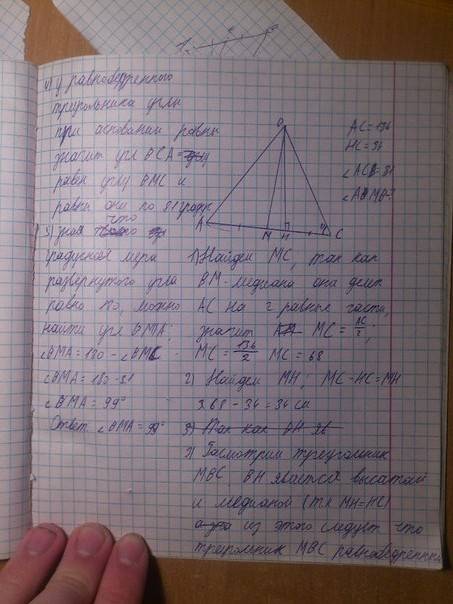 4) у равнобедренного
треугольника углы
при основании равны
значит угл BCA =
равен углу BMC и
равны они по 81 граду
что
5) зная
градусная мера
развернутого угла
равно 180, можно
найти угл BMA;
∠BMA = 180 - ∠BMC
∠BMA = 180 - 81
∠BMA = 99°
Ответ ∠BMA = 99°
B
A
M
H
C
AC = 136
HC = 34
∠ACB = 81
∠AMB = ?
1) Найдем MC, так как
BM - медиана она делит
AC на 2 равные части,
значит MC = AC/2;
MC = 136/2 MC = 68
2) Найдем MH, MC - HC = MH
68 - 34 = 34 см
3) Так как BH яв
3) Рассмотрим треугольник
MBC, BH является высотой
и медианой (тк MH = HC)
из этого следует что
треугольник MBC равнобедренный